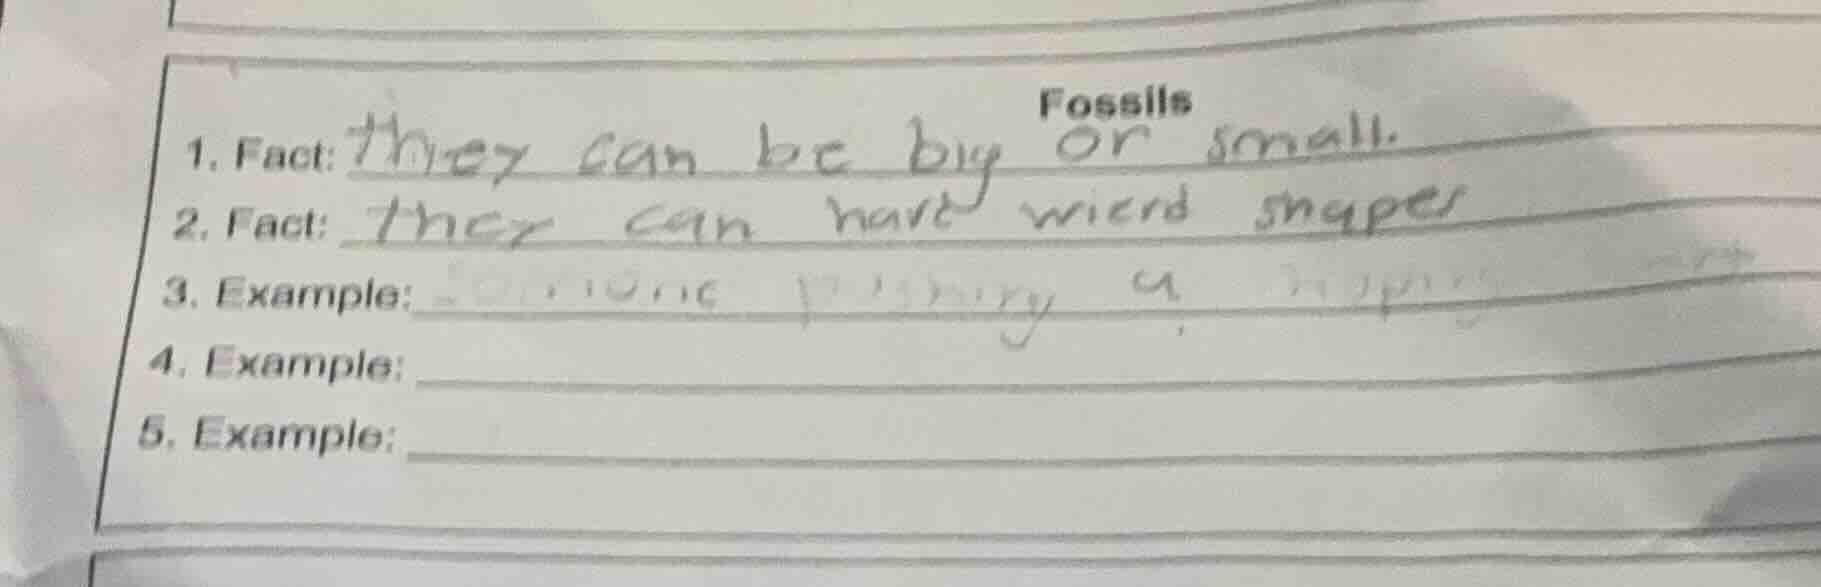 Fossils
1. Fact: they can be big or small.
2. Fact: they can have wierd shapes
3. Example: someone pushing a
4. Example:
5. Example: